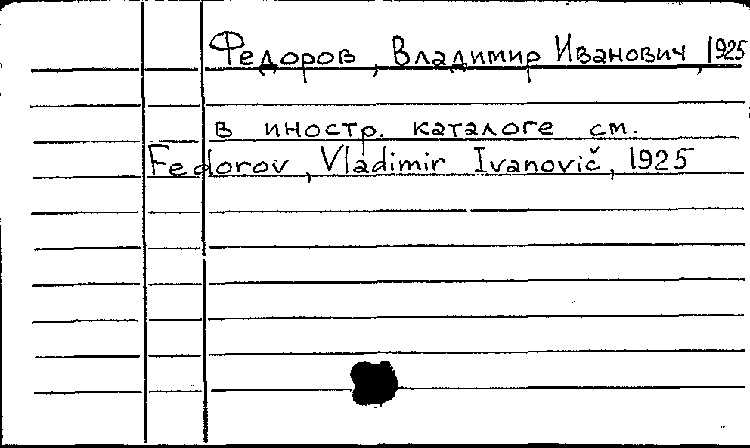 Федоров, Владимир Иванович, 1925
в иностр. каталоге см.
Fedorov, Vladimir Ivanovič, 1925